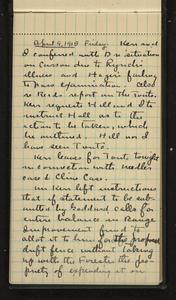 April 9, 1915 Friday. Ken and
I conferred with D on situation
on Carson due to Rynick's
illness and Hagers failing
to pass examination. Also
on Reeds report on the Tonto.
Ken requests Hill and I to
instruct Hall as to the
action to be taken, which
he instructed. Hill nor I
have seen Tonto.
Ken leaves for Tont, tonight
in connection with Heeller
case & Cline Case.
Mr Ken left instructions
that if statement to be sub-
mitted by Goddard calls for
entire balance in Range
Improvement fund to
allot it to him for the proposed
drift fence without taking
up with the Forester the pro-
priety of expending it on